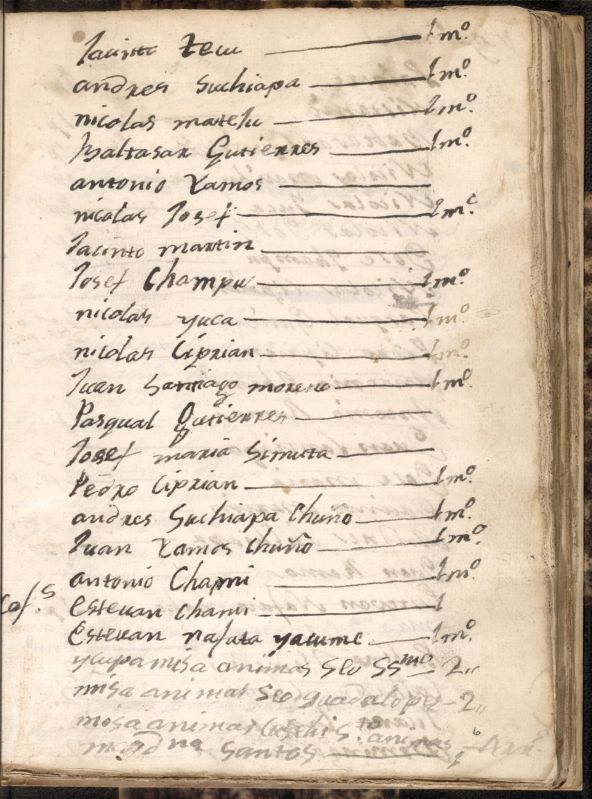 Jacinto tecu — 1 mº
andres Suchiapa — 1 mº
nicolas matelu — 1 mº
Baltasar Gutierres — 1 mº
antonio Ramos —
nicolas Josef — 1 mº
Jacinto martin —
Josef Champu — 1 mº
nicolas yuca — 1 mº
nicolas Ciprian — 1 mº
Juan Santiago moreno — 1 mº
Pasqual Gutierres —
Josef maria Simuta —
Pedro Ciprian — 1 mº
andres Suchiapa Chuño — 1 mº
Juan Ramos Chuño — 1 mº
antonio Chami — 1 mº
Estevan Chami — 1
Estevan nafata yacume — 1 mº
misa animas SSmo - 2
misa animas guadalope - 2
misa animas animas
Santos